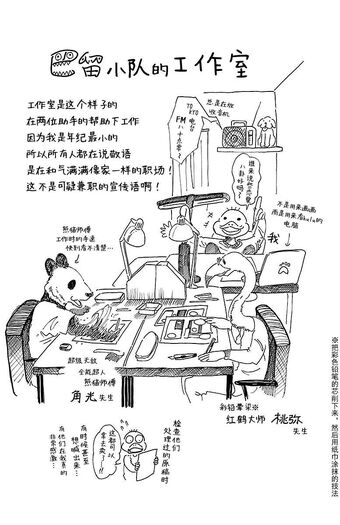 留小队的工作室
工作室是这个样子的
在两位助手的帮助下工作
因为我是年纪最小的
所以所有人都在说敬语
是在和气满满像家一样的职场！
这不是可疑兼职的宣传语啊！
总是在放
收音机
TOKYO
FM
八十点零？
电台
谁来说些恶魔
八卦好吗？
不是用来画画
而是用来看hulu的
电脑
我
熊猫师傅
工作时的手速
快到看不清楚…
超级天奴
全能超人
熊猫师傅
角光先生
彩铅晕染※
红鹤大师
桃弥
先生
检查他们
处理过的原稿时
这都可以
拿去卖了！！
有时候甚至
想喊出来
有他们在我真的
非常感激…
※把彩色铅笔的芯削下来，然后用纸巾涂抹的技法